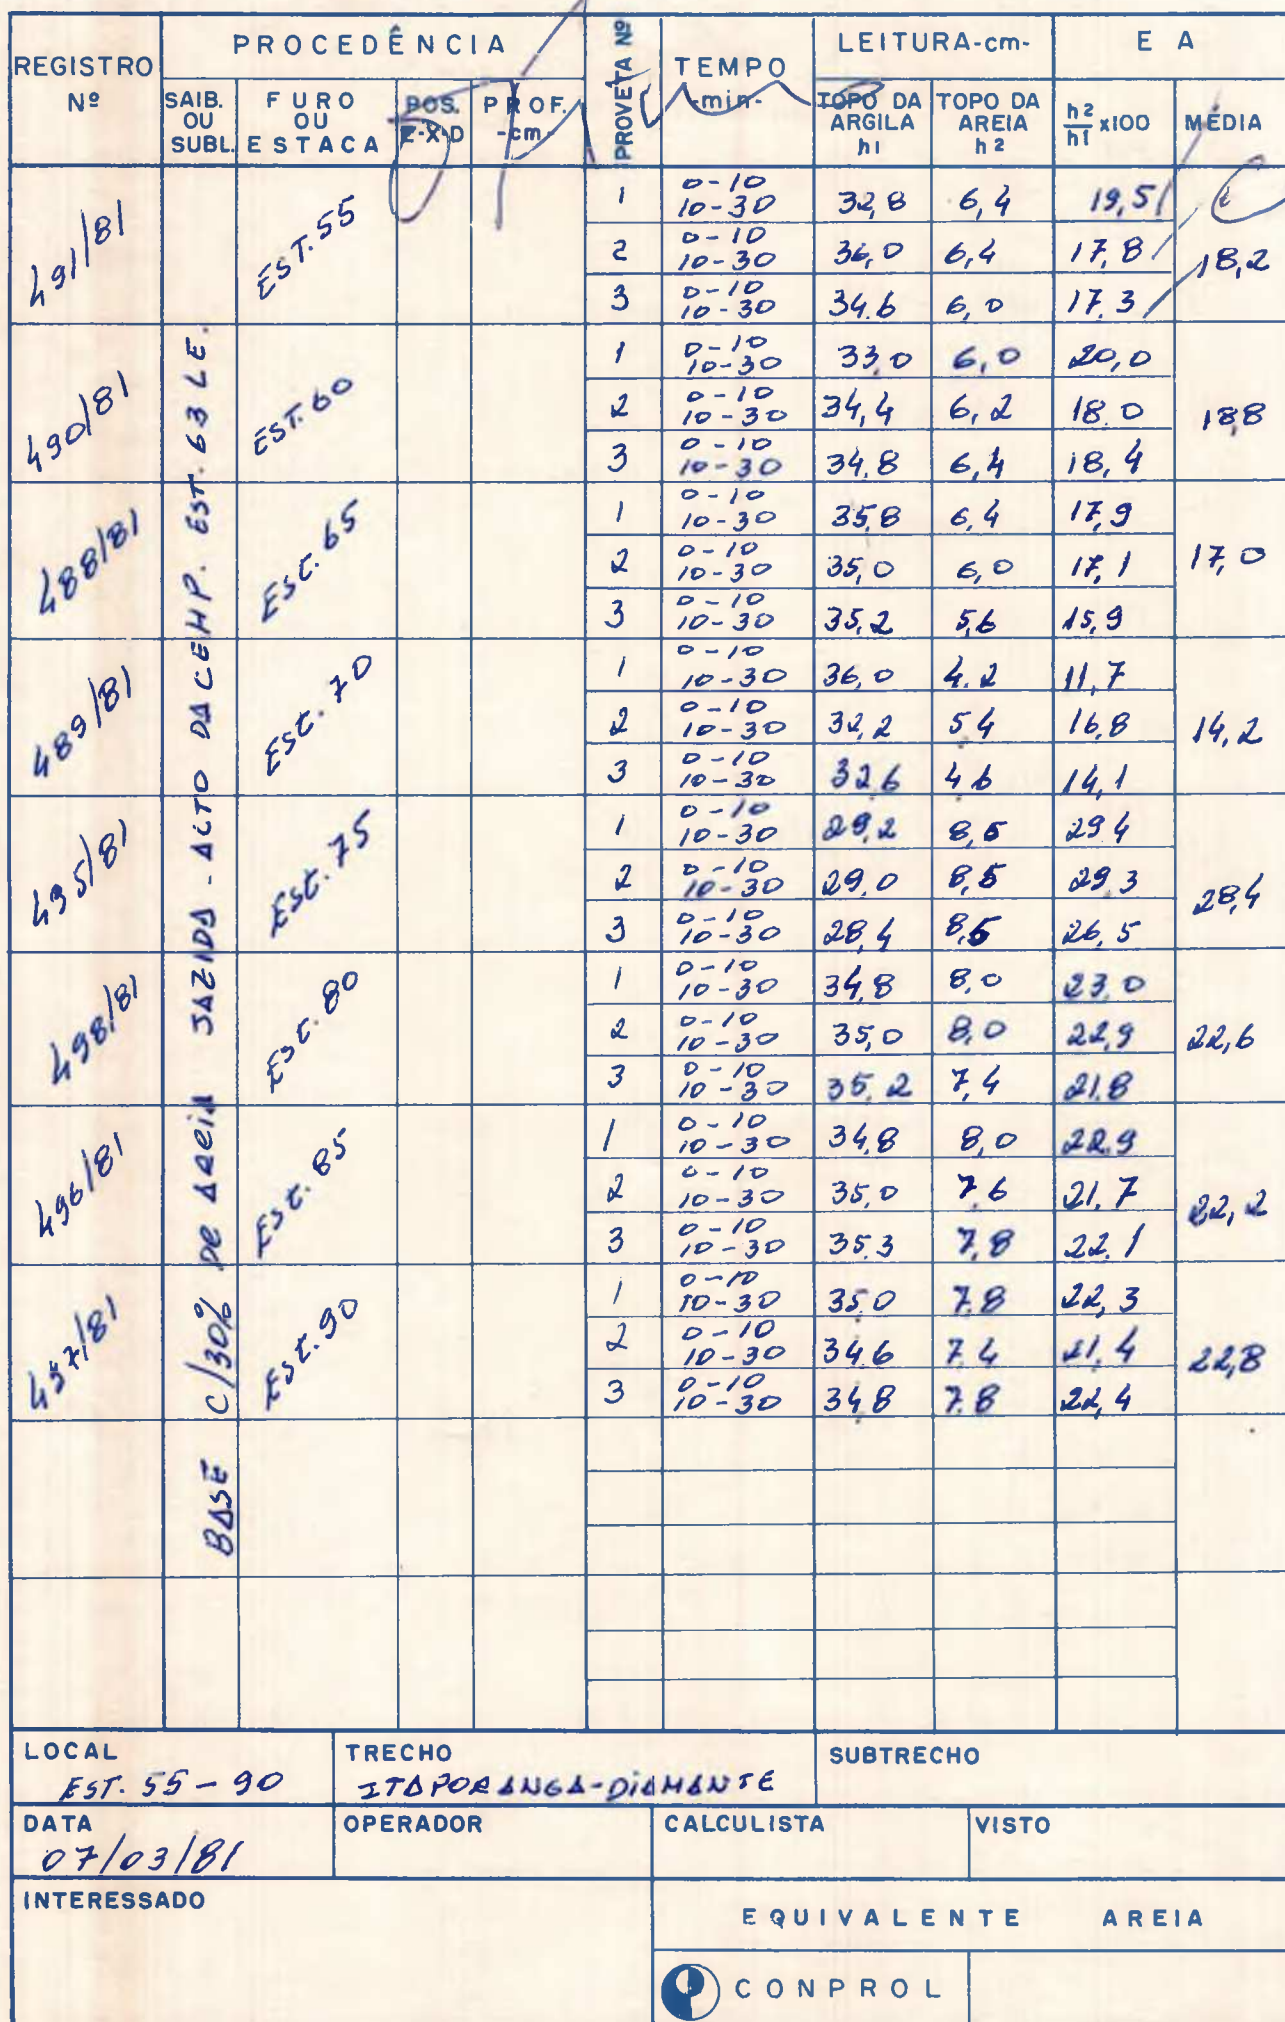 REGISTRO Nº
PROCEDÊNCIA
SAIB. OU SUBL.
FURO OU ESTACA
POS. E-X-D
PROF. -cm-
PROVETA Nº
TEMPO -min-
LEITURA-cm-
TOPO DA ARGILA h1
TOPO DA AREIA h2
E A
h2/h1 x100
MÉDIA
BASE C/30% DE AREIA JAZIDA - ALTO DA CEHP. EST. 63 LE.
491/81 EST. 55
1 0-10 10-30 32,8 6,4 19,5
2 0-10 10-30 36,0 6,4 17,8 18,2
3 0-10 10-30 34.6 6,0 17.3
490/81 EST. 60
1 0-10 10-30 33,0 6,0 20,0
2 0-10 10-30 34,4 6,2 18.0 18,8
3 0-10 10-30 34,8 6,4 18,4
488/81 Est. 65
1 0-10 10-30 35,8 6,4 17,9
2 0-10 10-30 35,0 6,0 17,1 17,0
3 0-10 10-30 35,2 5,6 15,9
489/81 Est. 70
1 0-10 10-30 36,0 4.2 11,7
2 0-10 10-30 32,2 5,4 16,8 14,2
3 0-10 10-30 32,6 4,6 14,1
495/81 Est. 75
1 0-10 10-30 29,2 29,4
2 0-10 10-30 29,0 8,5 29,3 28,4
3 0-10 10-30 28,4 26,5
498/81 Est. 80
1 0-10 10-30 34,8 8,0 23,0
2 0-10 10-30 35,0 8,0 22,9 22,6
3 0-10 10-30 35,2 7,4 21.8
496/81 Est. 85
1 0-10 10-30 34,8 8,0 22.9
2 0-10 10-30 35,0 7,6 21,7 22,2
3 0-10 10-30 35,3 7,8 22,1
Est. 90
1 0-10 10-30 35,0 7,8 22,3
2 0-10 10-30 34,6 7,4 21,4 22,8
3 0-10 10-30 34,8 7.8 22,4
LOCAL EST. 55 - 90
TRECHO ITAPORANGA-DIAMANTE
SUBTRECHO
DATA 07/03/81
OPERADOR
CALCULISTA
VISTO
INTERESSADO
EQUIVALENTE AREIA
CONPROL